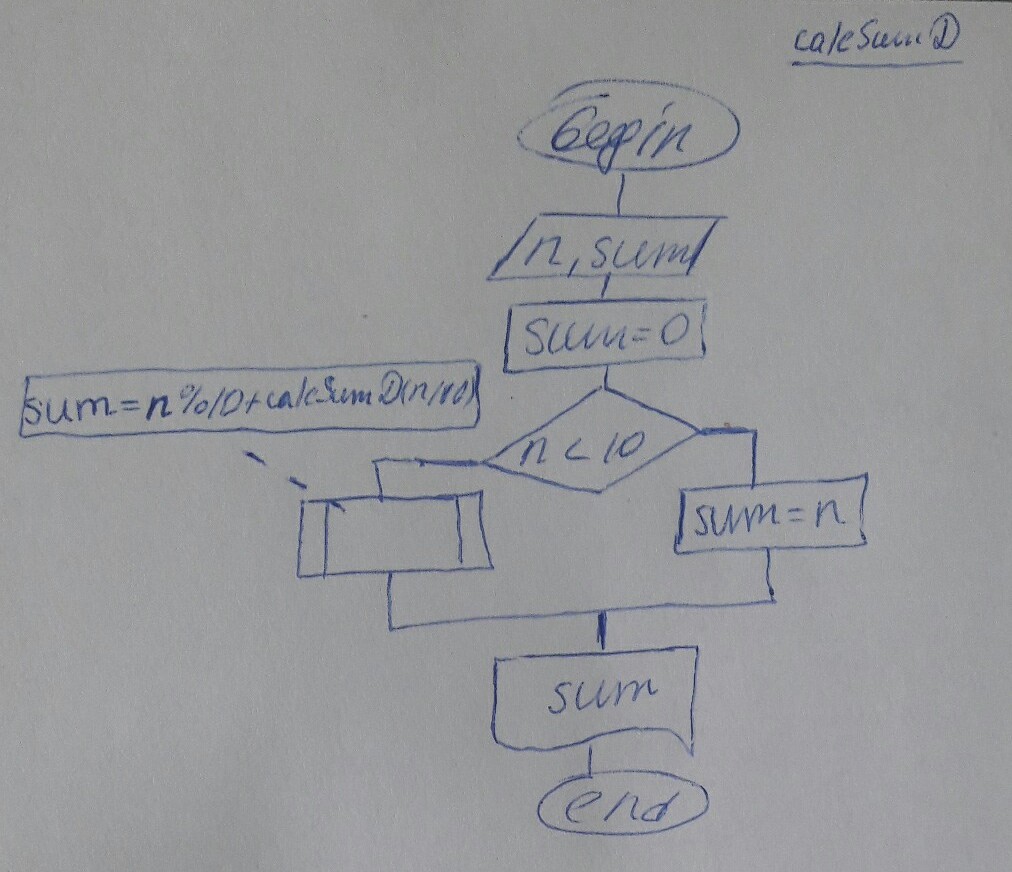 calcSumD
begin
n, sum
sum=0
sum=n%10+calcSumD(n/10)
n<10
sum=n
sum
end